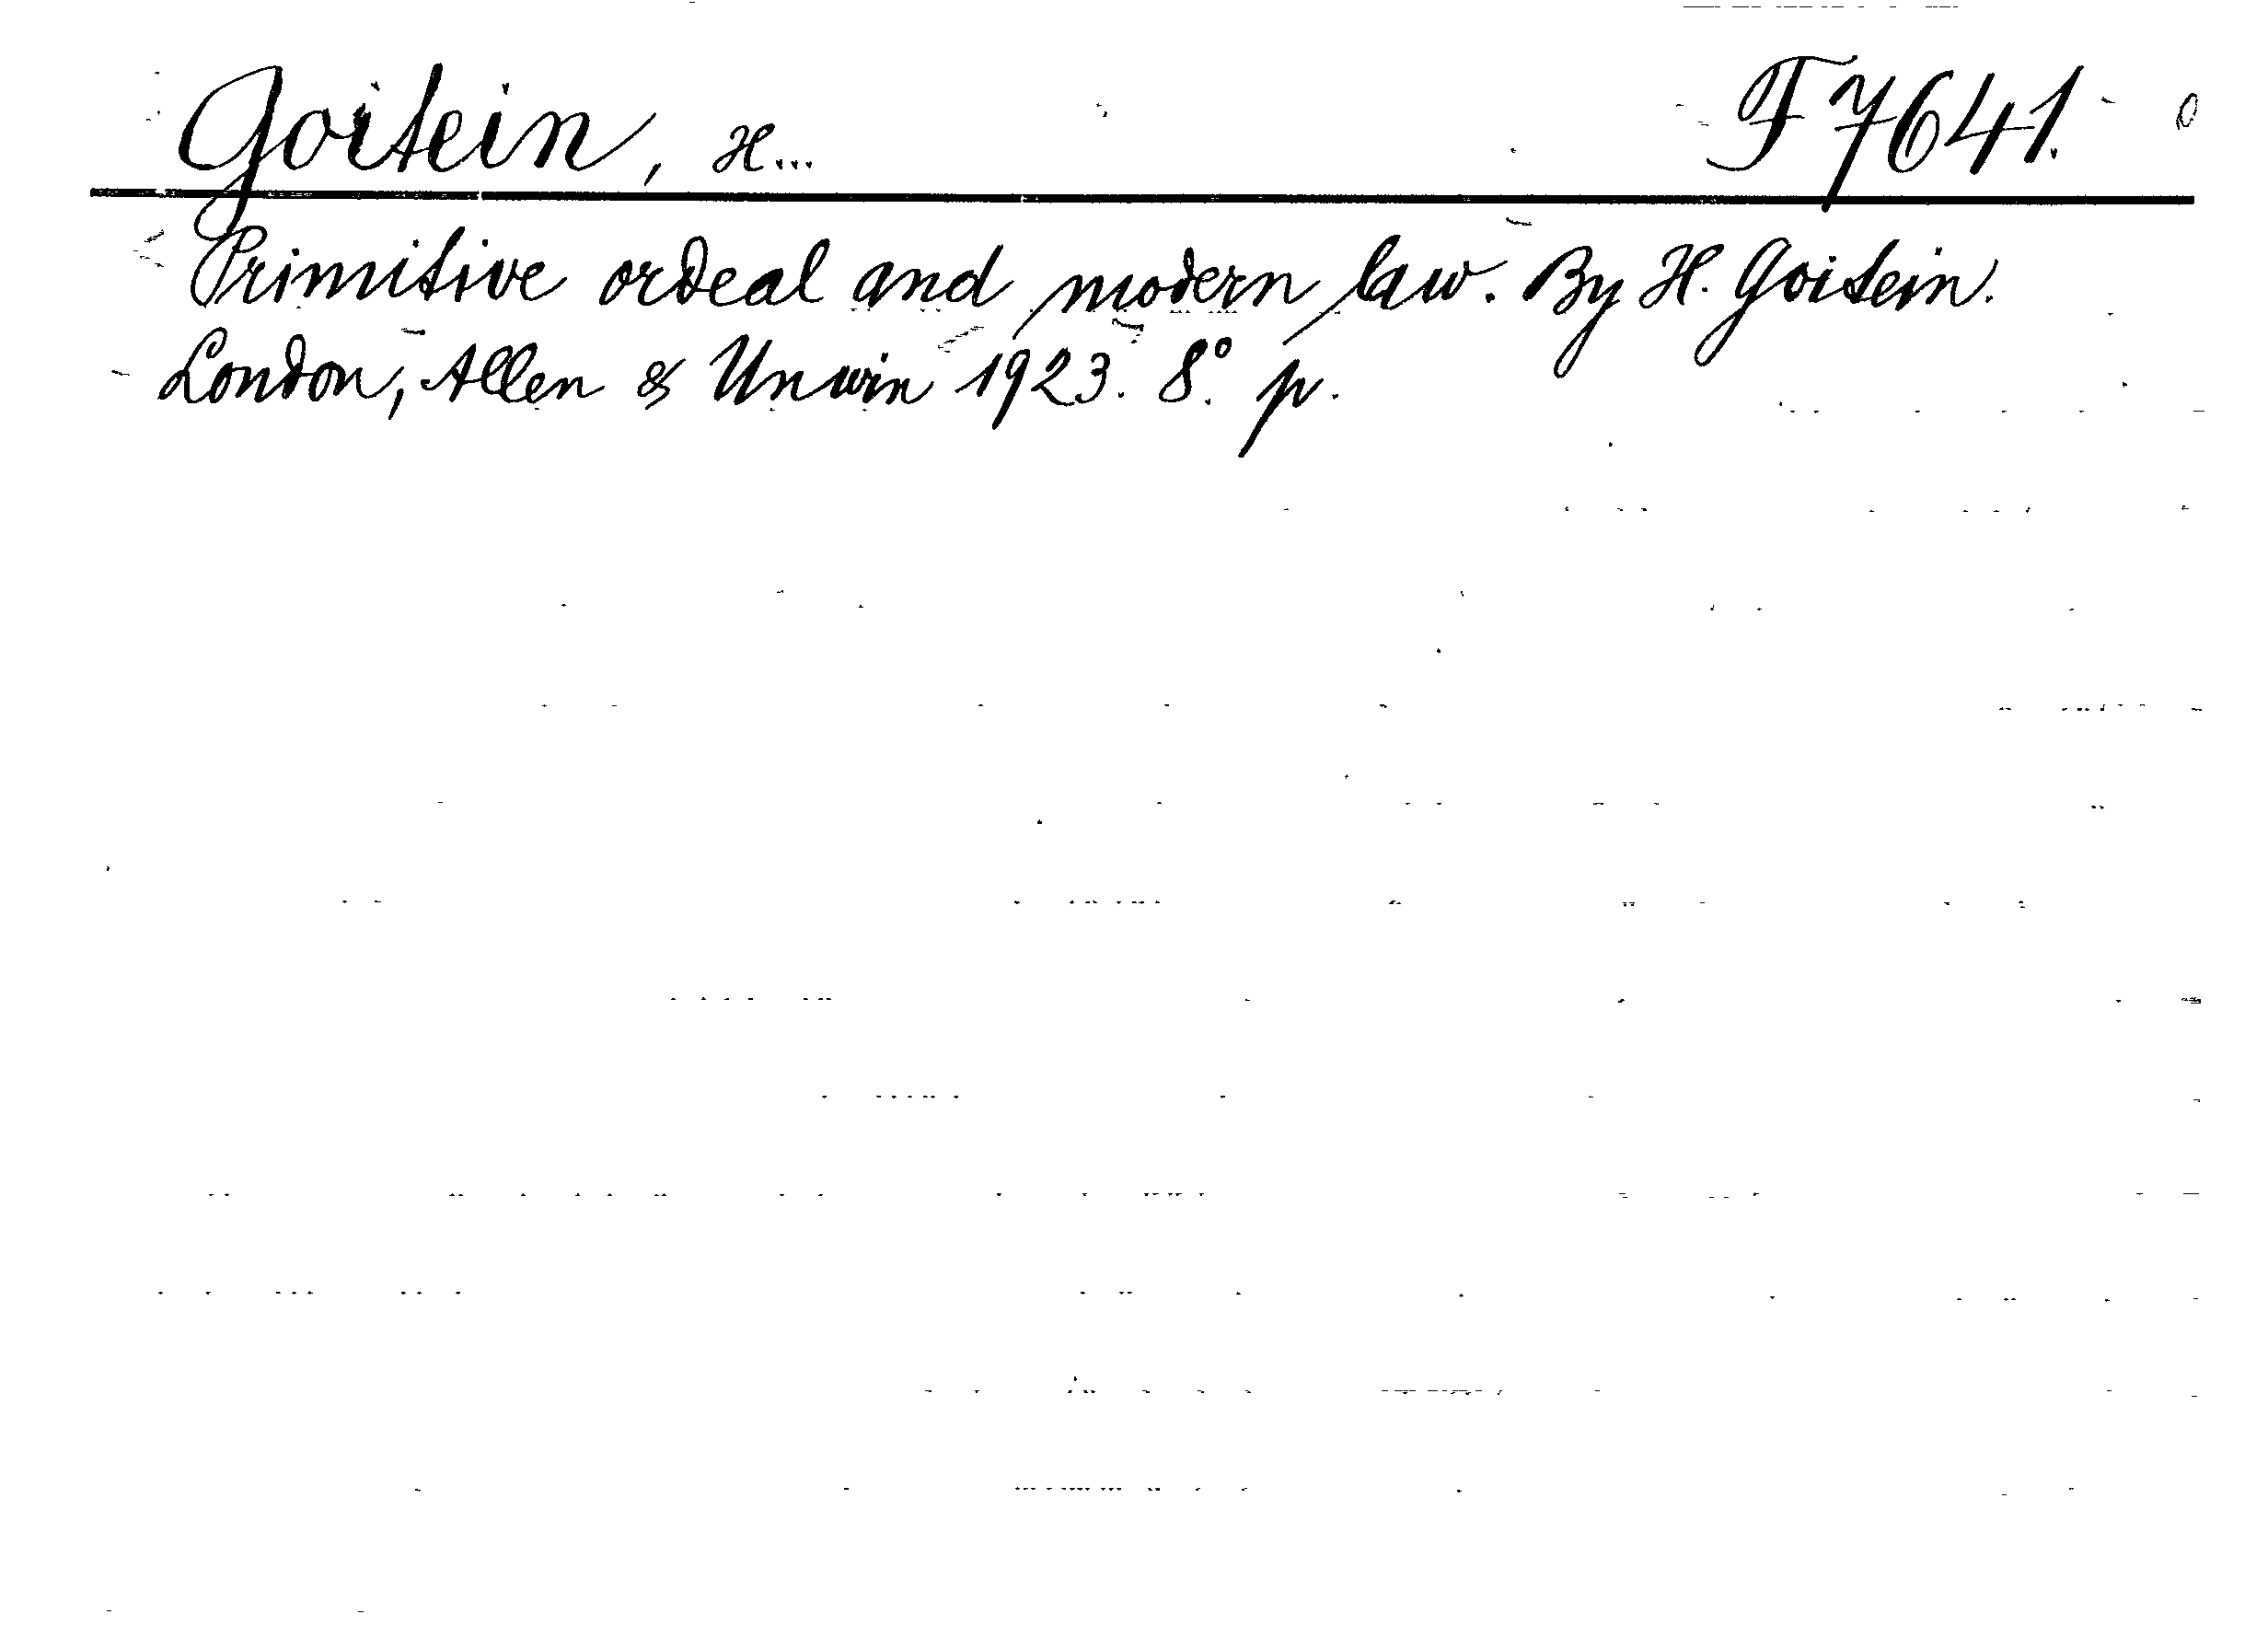 Goitein, H... F 7641.
Primitive ordeal and modern law. By H. Goitein.
London, Allen & Unwin 1923. 8°. p.